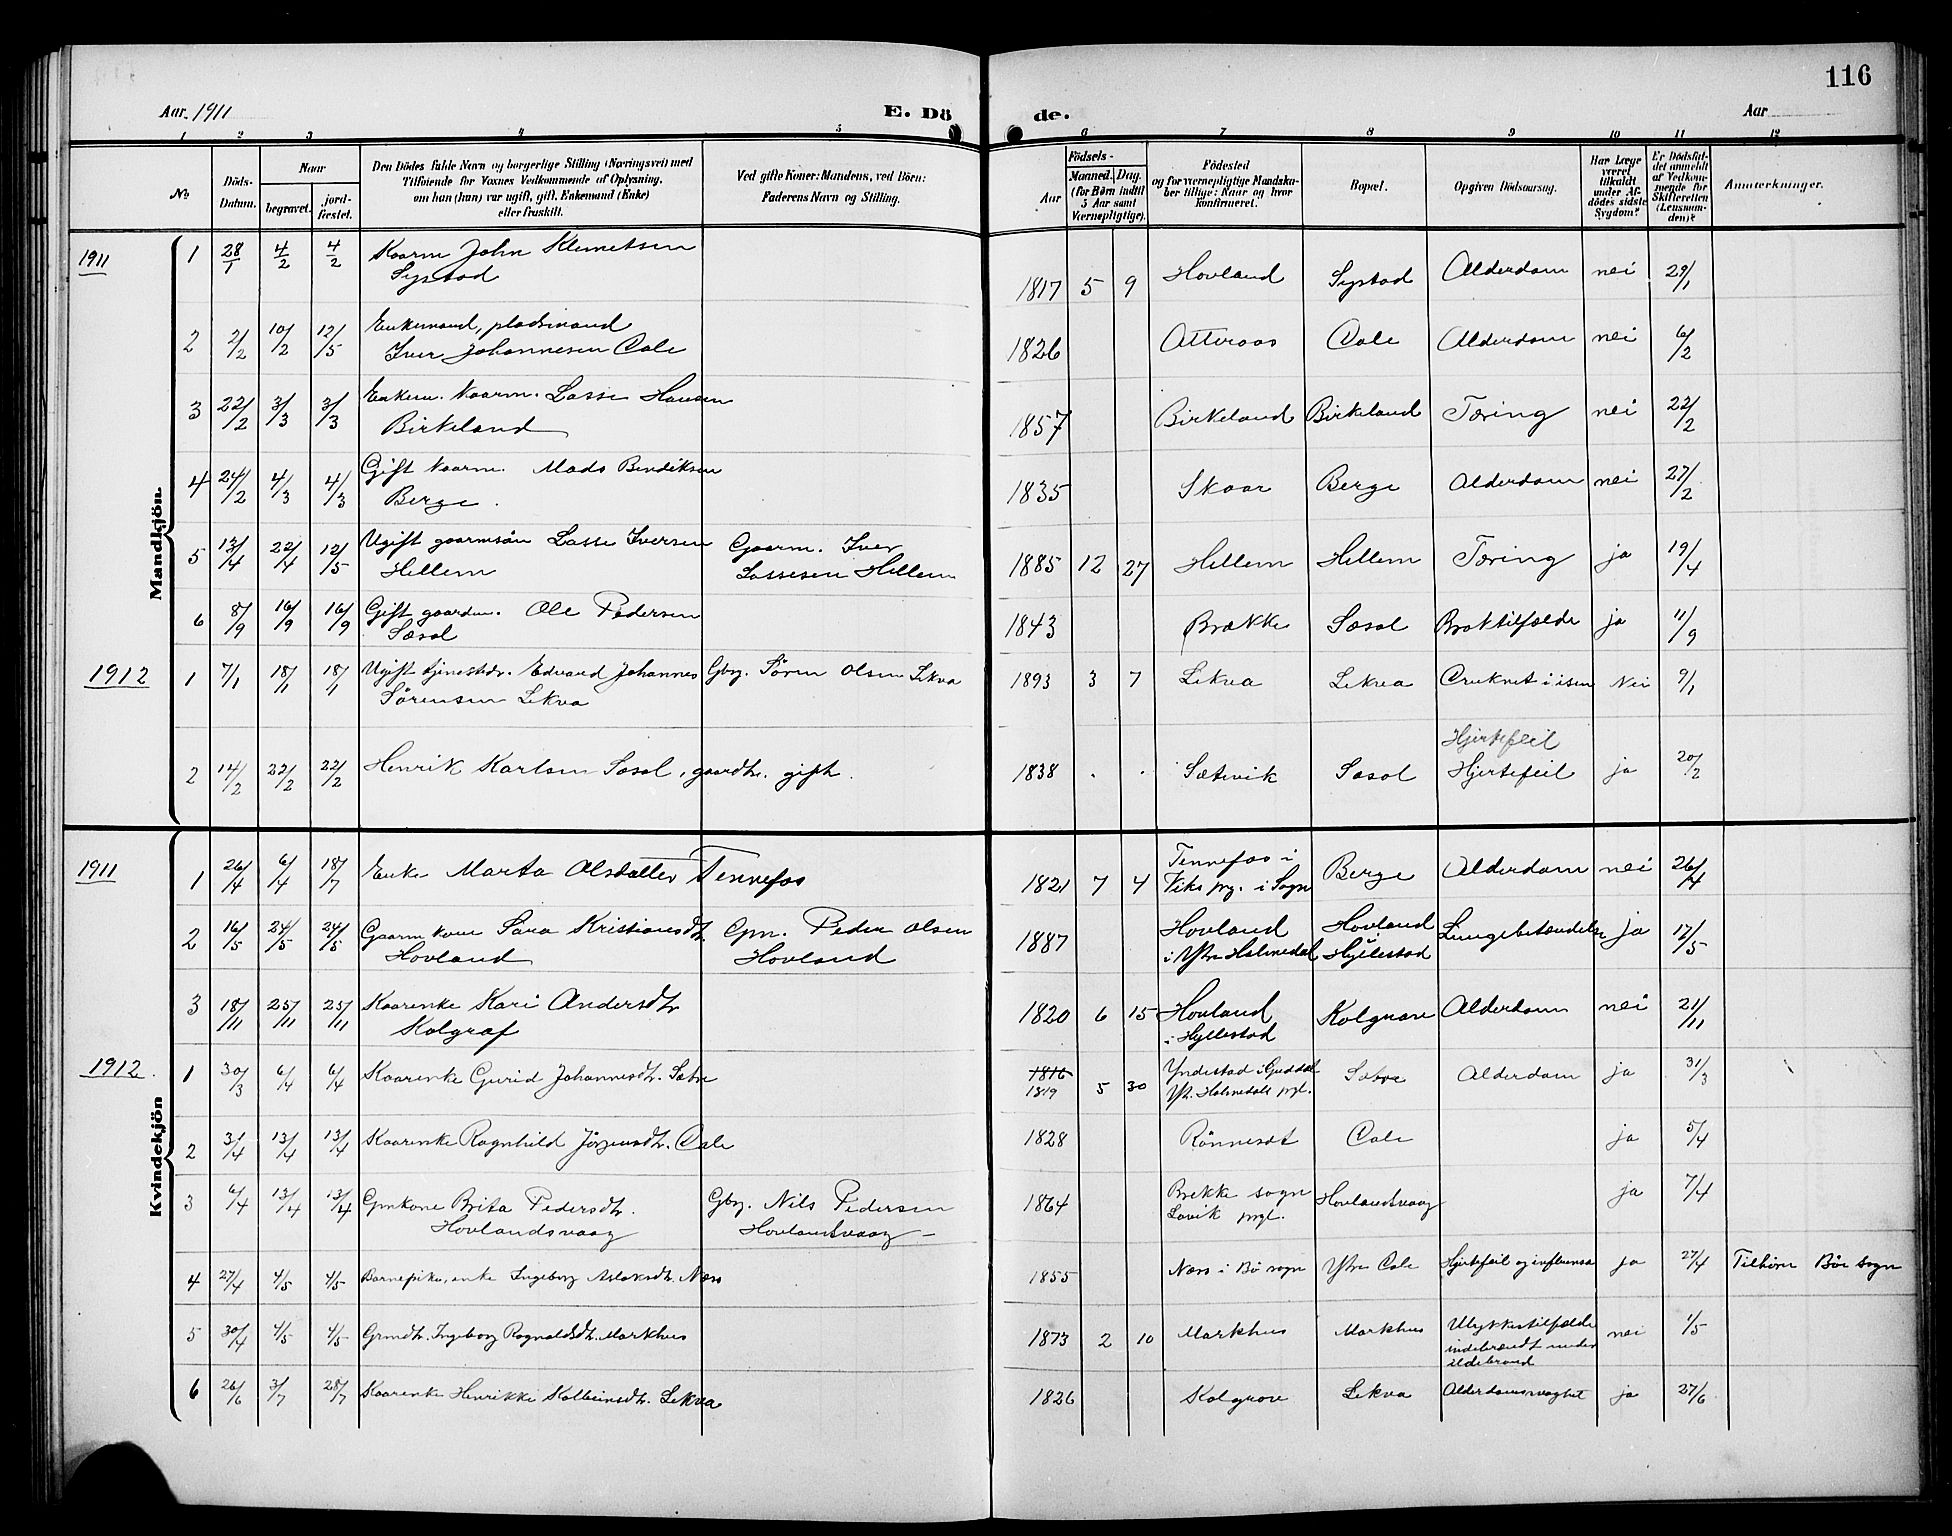 116
Aar 1911 E. Dö de. Aar
1 2 3 4 5 6 7 8 9 10 11 12
No
Döds-Datum.
Naar
begravet. jord-fæstet.
Den Dödes fulde Navn og borgerlige Stilling (Næringsvei) med
Tilföiende for Voxnes Vedkommende af Oplysning,
om han (hun) var ugift, gift, Enkemand (Enke)
eller fraskilt.
Ved gifte Koner: Mandens, ved Börn:
Faderens Navn og Stilling.
Födsels-
Aar
Maaned. Dag.
(for Børn indtil
5 Aar samt
Værnepligtige).
Födested
og for værnepligtige Mandska-
ber tillige: Naar og hvor
konfirmeret.
Bopæl.
Opgiven Dödsaarsag.
Har Læge
været
tilkaldt
under Af-
dödes sidste
Sygdom?
Er Dödsfal-
det anmeldt
af Vedkom-
mende for
Skifteretten
(Lensman-
den)?
Anmerkninger.
Mandkjön.
1911 1 28/1 4/2 4/2 Kaarm John Klemetsen 1817 5 9 Hovland Systad Alderdom nei 29/1
Systad
2 2/2 10/2 12/5 Enkemand, pladsmand 1826 Atteraas Dale Alderdom nei 6/2
Iver Johannesen Dale
3 22/2 3/3 3/3 Enkem. Kaarm. Lasse Hansen 1857 Birkeland Birkeland Tæring nei 22/2
Birkeland
4 24/2 4/3 4/3 Gift Kaarm. Mads Bendiksen 1835 Skaar Berge Alderdom nei 27/2
Berge.
5 13/4 22/4 12/5 Ugift gaarmsön Lasse Iversen Gaarm. Iver 1885 12 27 Hellem Hellem Tæring ja 19/4
Hellem Lassesen Hellem
6 8/9 16/9 16/9 Gift gaardm. Ole Pedersen 1843 Brække Sæsol Braktilfælde ja 11/9
Sæsol
1912 1 7/1 18/1 18/1 Ugift tjenestedr. Edvard Johannes Gbrg. Sören Olsen Lekva 1893 3 7 Lekva Lekva Druknet i isen Nei 9/1
Sörensen Lekva
2 14/2 22/2 22/2 Henrik Karlsen Sæsol, gaardbr. gift. 1838 . . Sætevik Sæsol Hjertefeil ja 20/2
Hjertefeil
Kvindekjön
1911 1 26/4 6/4 18/7 Enke Marta Olsdatter Tennefos 1821 7 4 Tennefos i Berge Alderdom nei 26/4
Viks prg. i Sogn
2 16/5 24/5 24/5 Gaarm kone Sara Kristiansdtr. Gm. Peder Olsen 1887 Hovland Hovland Lungebetændelse ja 17/5
Hovland Hovland i Ytre Holmedal Hyllestad
3 18/11 25/11 25/11 Kaarenke Kari Andersdtr 1820 6 15 Hovland Kolgrave Alderdom nei 21/11
Kolgraf i Hyllestad
1912. 1 30/3 6/4 6/4 Kaarenke Gurid Johannesdtr. Sætre 1816 1819 5 30 Yndestad i Guddal Sætre Alderdom ja 31/3
Ytr. Holmedals prgl.
2 3/4 13/4 13/4 Kaarenke Ragnhild Jörgensdtr. Dale 1828 Rönneset Dale ja 5/4
3 6/4 13/4 13/4 Gmkone Brita Pedersdtr. Gbrg. Nils Pedersen 1864 Brekke sogn Hovlandsvaag ja 7/4
Hovlandsvaag Hovlandsvaag Lavik prgl.
4 27/4 4/5 4/5 Barnepike, enke Ingeborg Aslaksdtr. Næss 1855 Næss i Bö sogn Ytre Dale Hjertefeil og influensa ja 27/4 Tilhörer Böe sogn
5 30/4 4/5 4/5 Grmdtr. Ingeborg Ragnaldsdtr. Markhus 1873 2 10 Markhus Markhus Ulykkestilfælde nei 1/5
indebrændt under
ildebrand
6 26/6 3/7 28/7 Kaarenke Henrikke Kolbeinsdtr. Lekva 1826 Kolgrove Lekva Alderdomssvaghet ja 27/6